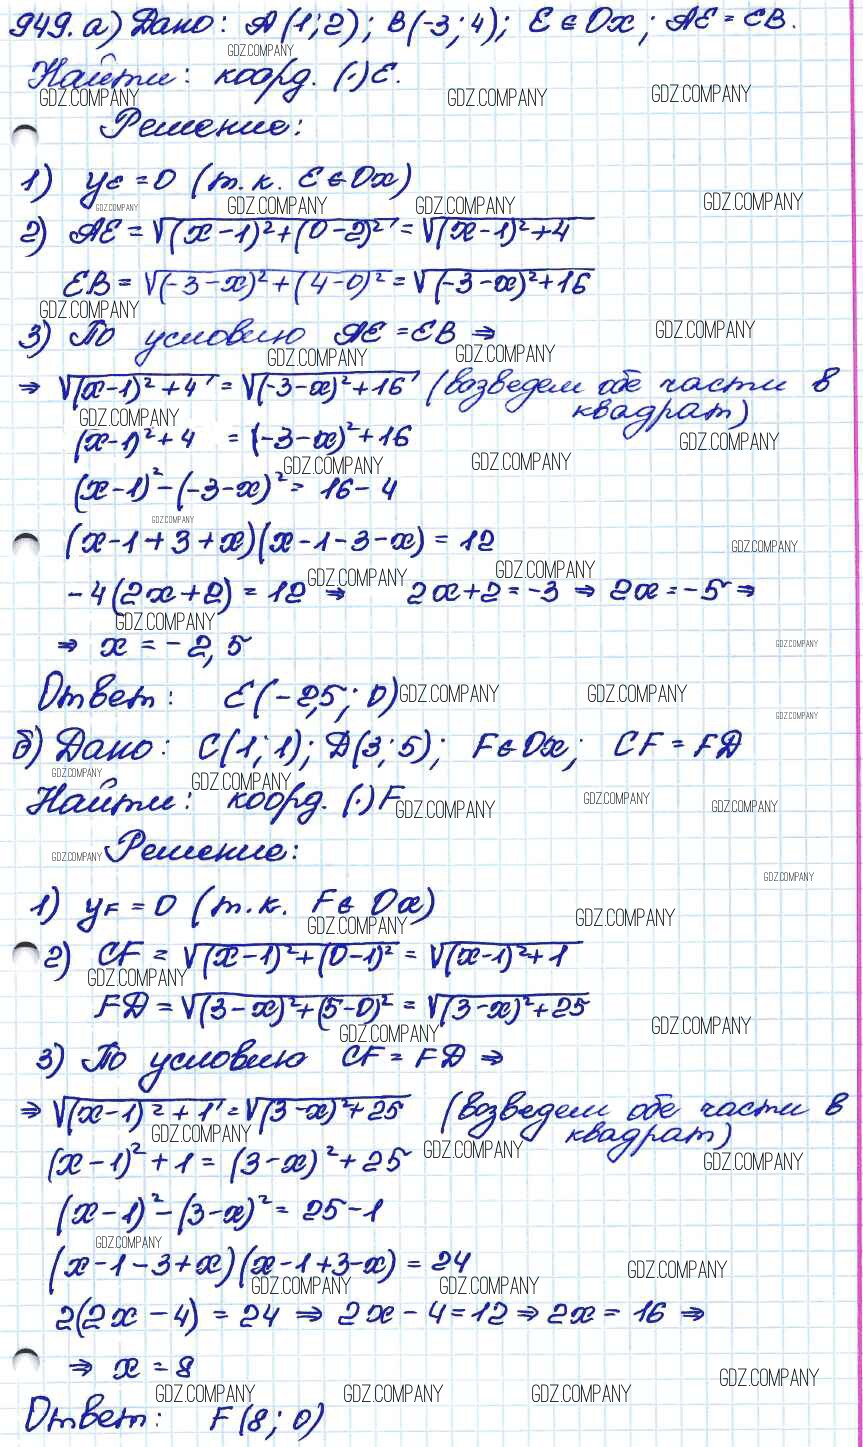 949. а) Дано: A(1;2); B(-3;4); E∈Ox; AE=EB.
GDZ.COMPANY
Найти: коорд. (·)E.
GDZ.COMPANY GDZ.COMPANY GDZ.COMPANY
Решение:
1) yE = 0 (т.к. E∈Ox)
GDZ.COMPANY GDZ.COMPANY GDZ.COMPANY GDZ.COMPANY
2) AE = √(x-1)²+(0-2)² = √(x-1)²+4
EB = √(-3-x)²+(4-0)² = √(-3-x)²+16
GDZ.COMPANY
3) По условию AE=EB ⇒
GDZ.COMPANY
GDZ.COMPANY GDZ.COMPANY
⇒ √(x-1)²+4 = √(-3-x)²+16 (возведем обе части в
квадрат)
GDZ.COMPANY
(x-1)²+4 = (-3-x)²+16
GDZ.COMPANY
GDZ.COMPANY GDZ.COMPANY
(x-1)²-(-3-x)² = 16-4
GDZ.COMPANY
(x-1+3+x)(x-1-3-x) = 12
GDZ.COMPANY
GDZ.COMPANY GDZ.COMPANY
-4(2x+2) = 12 ⇒ 2x+2=-3 ⇒ 2x=-5 ⇒
GDZ.COMPANY
⇒ x = -2,5
GDZ.COMPANY
Ответ: E(-2,5; 0)
GDZ.COMPANY GDZ.COMPANY
GDZ.COMPANY
б) Дано: C(1;1); D(3;5); F∈Ox; CF=FD
GDZ.COMPANY GDZ.COMPANY
Найти: коорд. (·)F
GDZ.COMPANY GDZ.COMPANY GDZ.COMPANY
Решение:
GDZ.COMPANY GDZ.COMPANY
1) yF = 0 (т.к. F∈Ox)
GDZ.COMPANY GDZ.COMPANY
2) CF = √(x-1)²+(0-1)² = √(x-1)²+1
GDZ.COMPANY
FD = √(3-x)²+(5-0)² = √(3-x)²+25
GDZ.COMPANY GDZ.COMPANY
3) По условию CF=FD ⇒
⇒ √(x-1)²+1 = √(3-x)²+25 (возведем обе части в
квадрат)
GDZ.COMPANY GDZ.COMPANY GDZ.COMPANY
(x-1)²+1 = (3-x)²+25
(x-1)²-(3-x)² = 25-1
GDZ.COMPANY
(x-1-3+x)(x-1+3-x) = 24
GDZ.COMPANY GDZ.COMPANY GDZ.COMPANY
2(2x-4) = 24 ⇒ 2x-4=12 ⇒ 2x=16 ⇒
⇒ x=8
GDZ.COMPANY
GDZ.COMPANY GDZ.COMPANY GDZ.COMPANY
Ответ: F(8; 0)